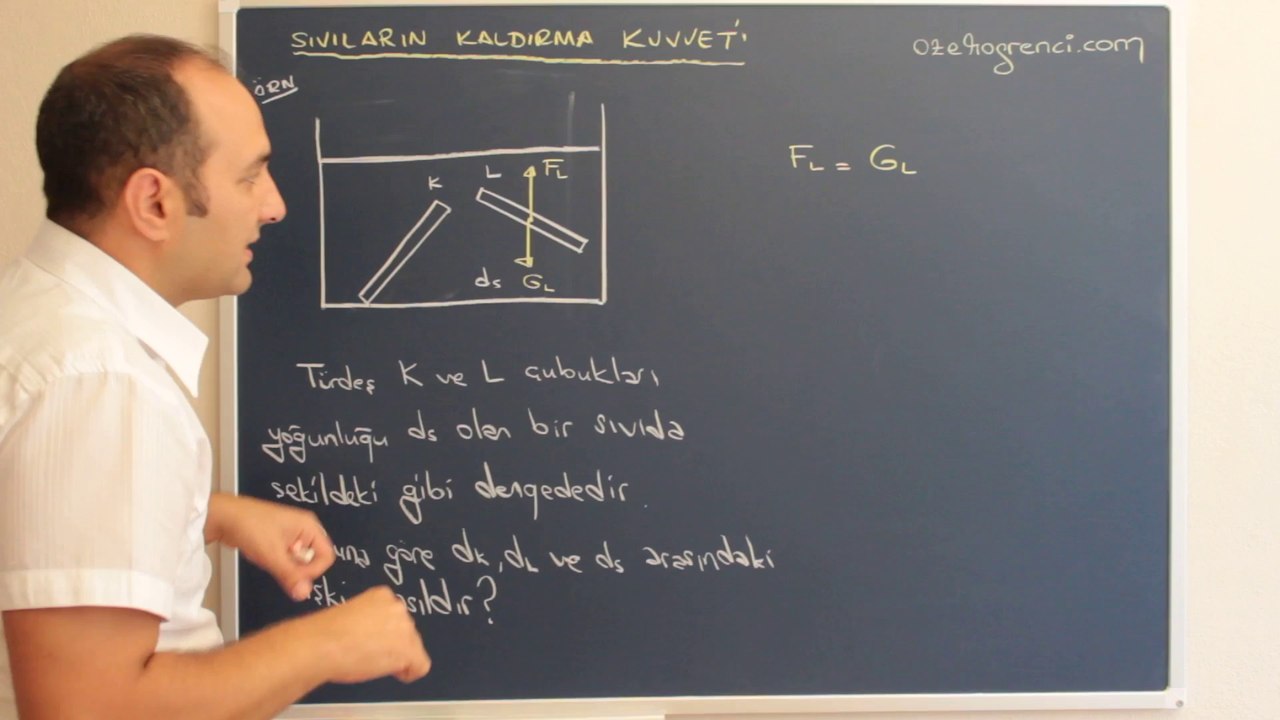 SIVILARIN KALDIRMA KUVVETİ
ozelogrenci.com
ÖRN
FL = GL
K
L
FL
ds
GL
Türdeş K ve L çubukları
yoğunluğu ds olan bir sıvıda
şekildeki gibi dengededir.
göre dK, dL ve ds arasındaki